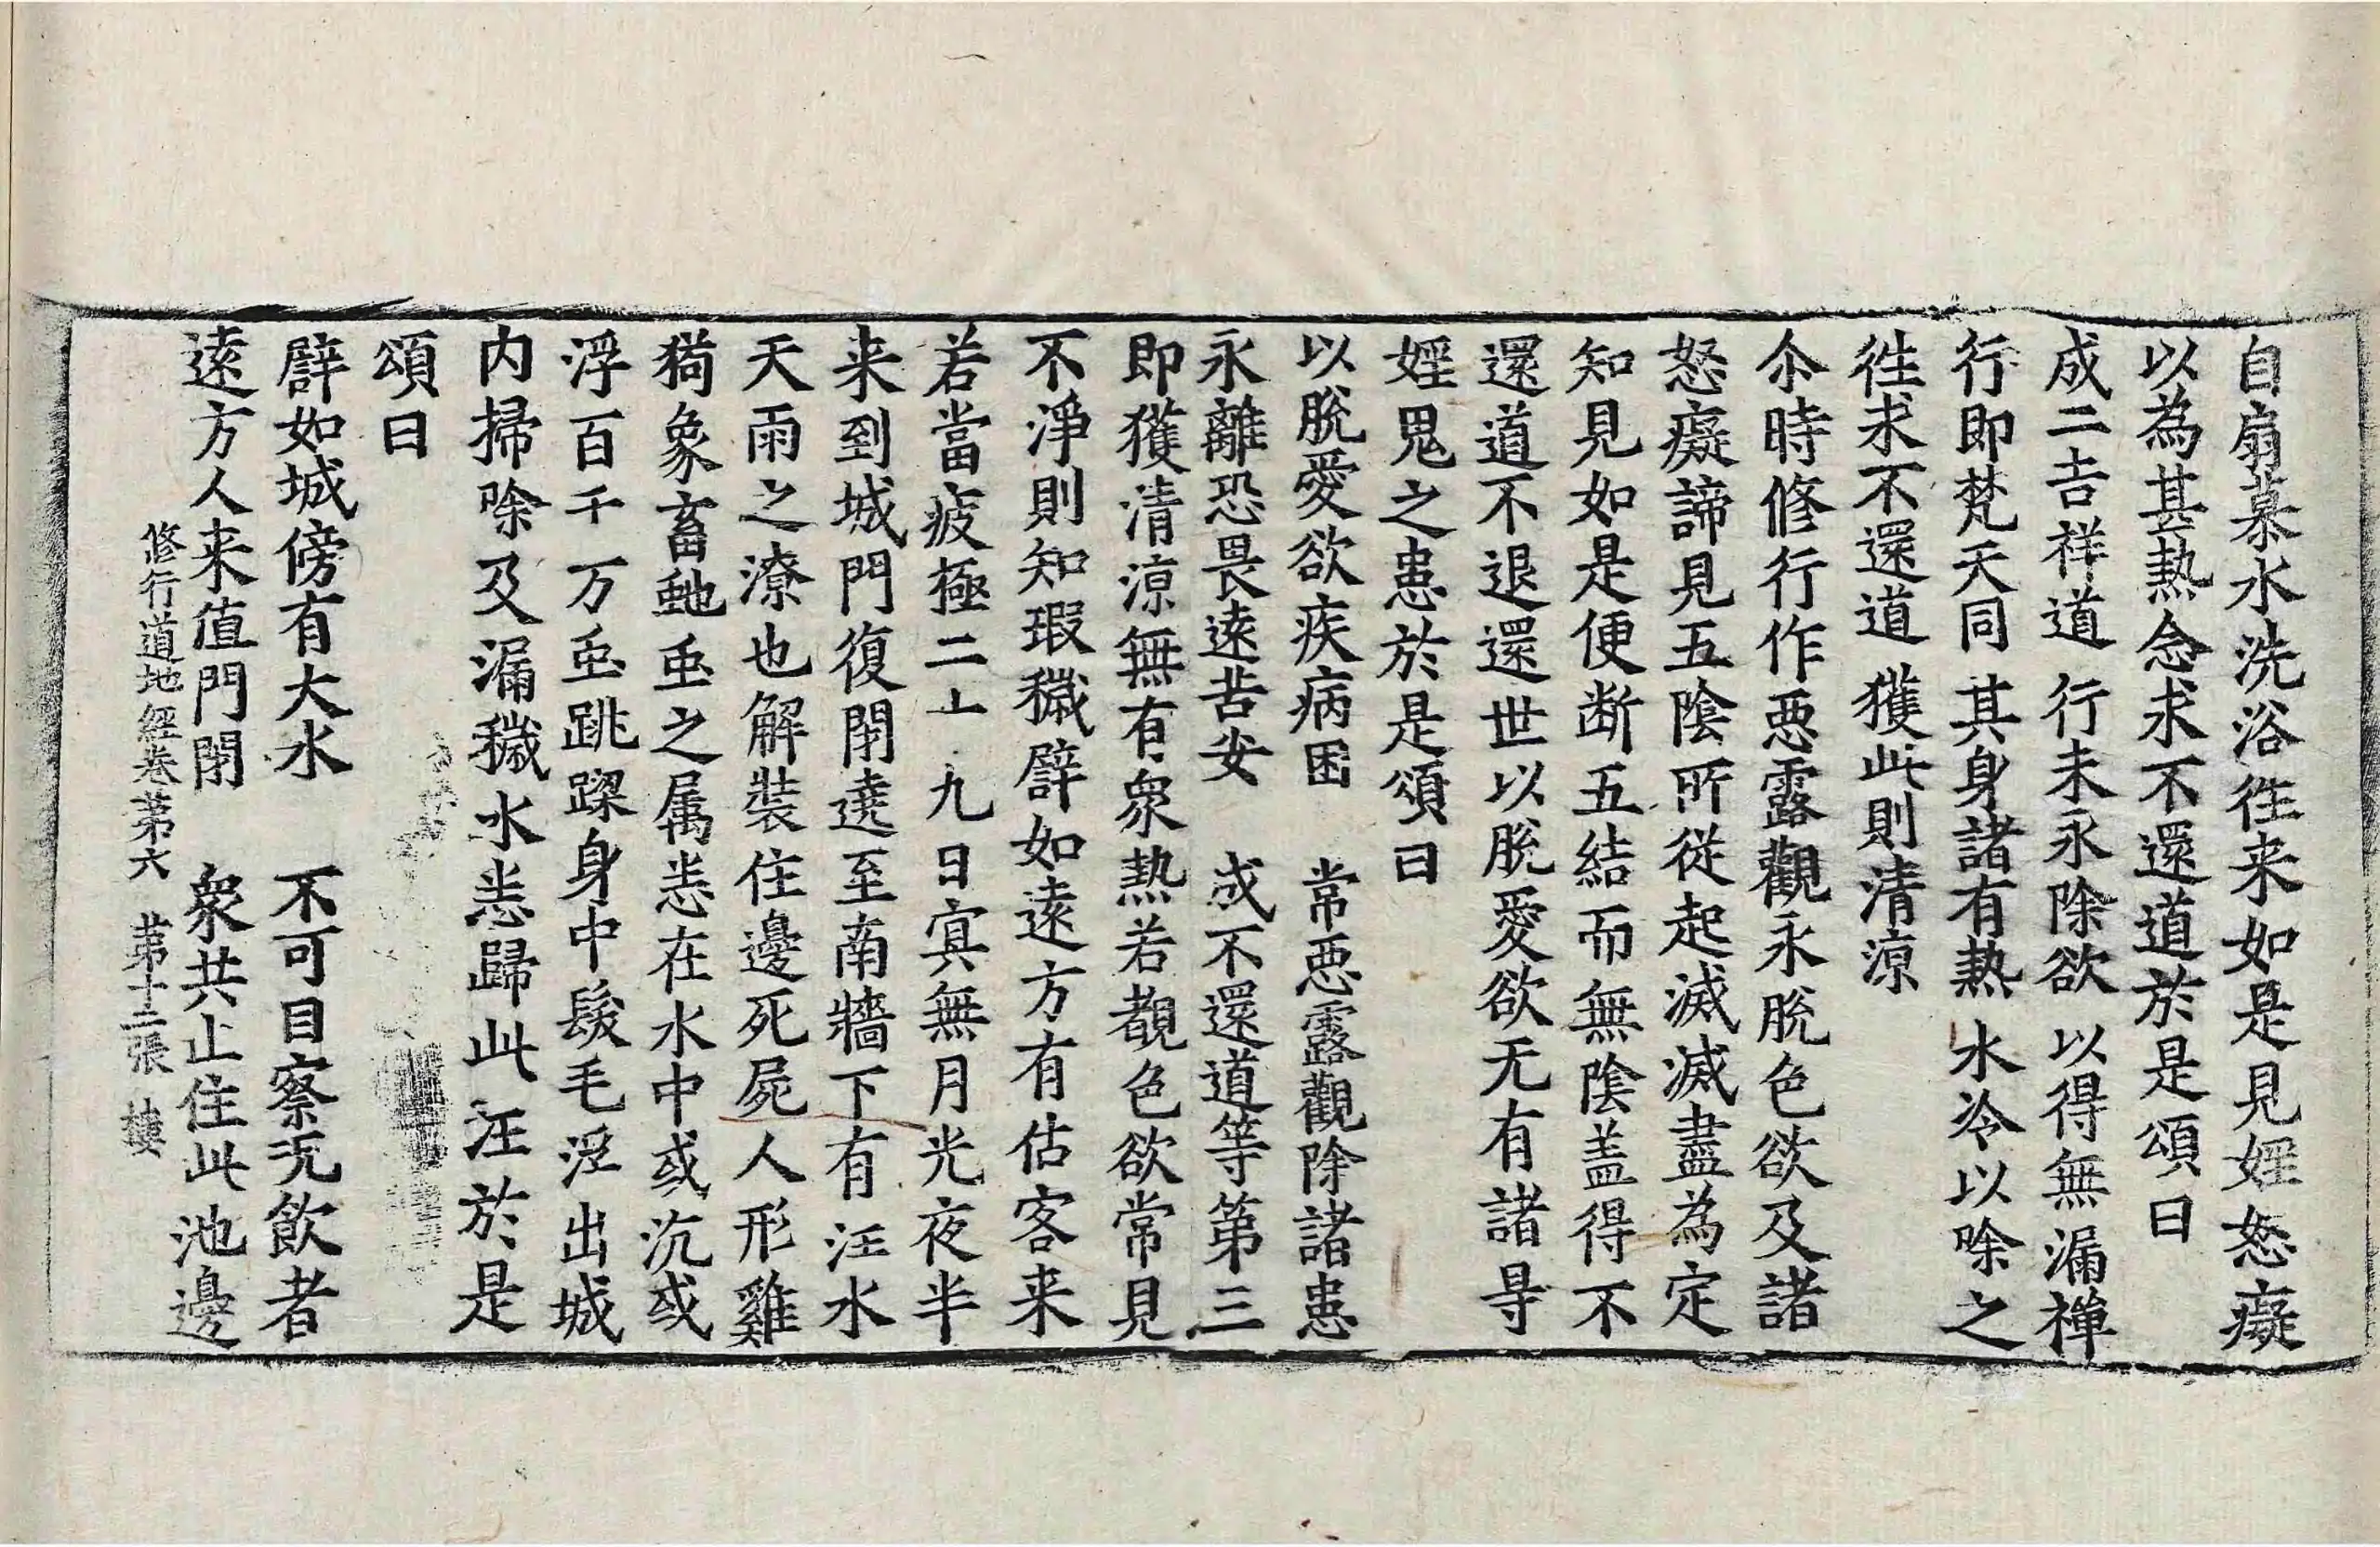 自扇慕水洗浴徃来如是見婬怒癡
以為甚熱念求不還道於是頌曰
成二吉祥道　行未永除欲　以得無漏禪
行即梵天同　其身諸有熱　水冷以除之
徃求不還道　獲此則清涼
尒時修行作惡露觀永脫色欲及諸
怒癡諦見五陰所從起滅滅盡為定
知見如是便断五結而無陰盖得不
還道不退還世以脫愛欲无有諸㝵
婬鬼之患於是頌曰
以脫愛欲疾病困　常惡露觀除諸患
永離恐畏逺苦安　成不還道等第三
即獲清涼無有衆熱若覩色欲常見
不淨則知瑕穢譬如逺方有估客来
若當疲極二十九日㝠無月光夜半
来到城門復閉遶至南牆下有汪水
天雨之潦也解裝住邊死屍人形雞
狗象畜虵䖝之属悉在水中或沉或
浮百千万䖝跳踝身中髮毛浮出城
内掃除及漏穢水悉歸此汪於是
頌曰
譬如城傍有大水　不可目察无飲者
逺方人来值門閉　衆共止住此池邊
修行道地經卷第六　第十二張　樓